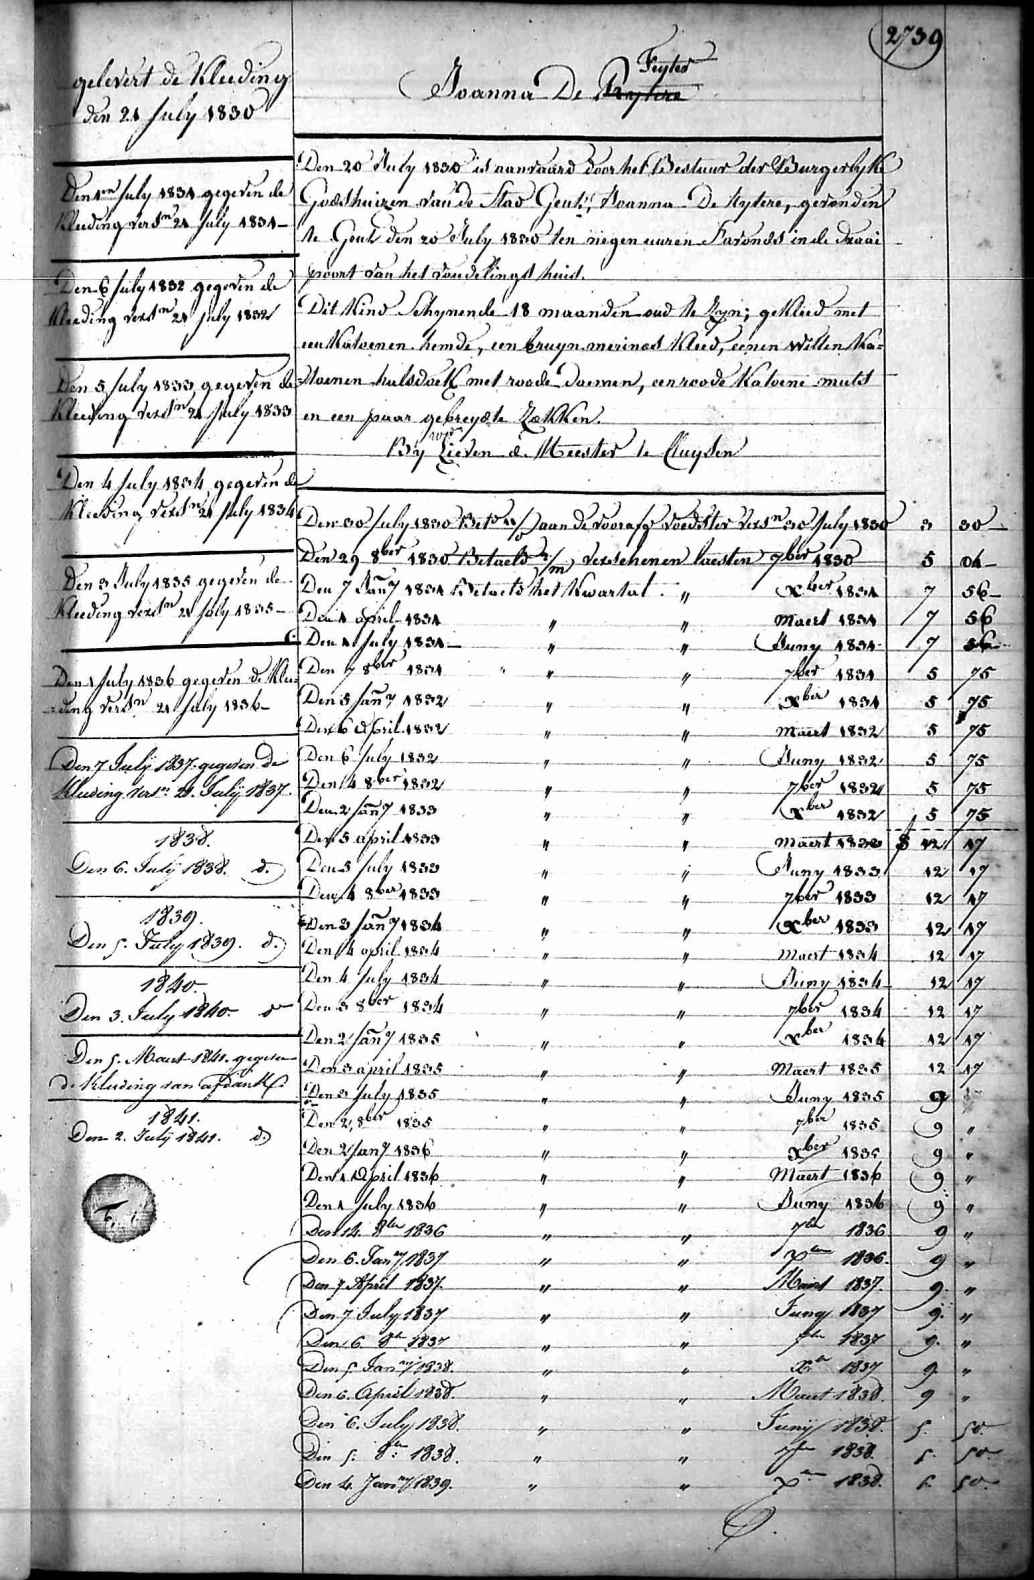 2739
gelevert de Kleeding
den 21 July 1830
Feyter
Joanna De Ruytere
Den 1en July 1831 gegeven de
Kleeding versn 21 July 1831
Den 6 July 1832 gegeven de
Kleeding versn 21 July 1832
Den 5 July 1833 gegeven de
Kleeding versn 21 July 1833
Den 4 July 1834 gegeven de
Kleeding versn 21 July 1834
Den 3 July 1835 gegeven de
Kleeding versn 21 July 1835
Den 1 July 1836 gegeven de Klee=
=ding versn 21 July 1836
Den 7 Julij 1837. gegeven de
Kleeding versn 21. Julij 1837.
1838.
Den 6. Julij 1838. d.
1839.
Den 5. July 1839. d.
1840.
Den 3. July 1840. do
Den 5. Maert 1841. gegeven
de Kleeding van afdank.
1841.
Den 2. Julij 1841. d.
Den 20 July 1830 is aanvaard door het Bestuur der Burgerlyke
Godshuizen van de Stad Gent, Joanna De Ruytere, gevonden
te Gent den 20 July 1830 ten negen euren s'avonds in de draai
poort van het vondelings huis.
Dit Kind Schynende 18 maanden oud te Zyn; gekleed met
een Katoenen hemde, een bruyn merinos Kleed, eenen witten Ka=
=toenen halsdoek met roode doemen, een roode Katoene muts
en een paar gebreyde Zokken.
By Lieven de Meester te Cluysen
Den 30 July 1830 aan de voorafg voedster versn 30 July 1830 3 30
Den 29 8ber 1830 Betaeld verschenen laesten 7ber 1830 5 04
Den 7 Jany 1831 Betaelt het Kwartal " xber 1831 7 56
Den 4 april 1831 " " Maert 1831 7 56
Den 1 July 1831 " " Juny 1831 7 56
Den 7 8ber 1831 " " 7ber 1831 5 75
Den 5 Jany 1832 " " xber 1831 5 75
Den 6 April 1832 " " Maert 1832 5 75
Den 6 July 1832 " " Juny 1832 5 75
Den 4 8ber 1832 " " 7ber 1832 5 75
Den 2 Jany 1833 " " xber 1832 5 75
Den 5 april 1833 " " Maert 1833 12 17
Den 5 July 1833 " " Juny 1833 12 17
Den 4 8ber 1833 " " 7ber 1833 12 17
Den 3 Jany 1834 " " xber 1833 12 17
Den 4 april 1834 " " Maert 1834 12 17
Den 4 July 1834 " " Juny 1834 12 17
Den 3 8ber 1834 " " 7ber 1834 12 17
Den 2 Jany 1835 " " xber 1834 12 17
Den 3 april 1835 " " Maert 1835 12 17
Den 3 July 1835 " " Juny 1835 9
Den 2 8ber 1835 " " 7ber 1835 9 "
Den 2 Jany 1836 " " xber 1835 9 "
Den 1 April 1836 " " Maert 1836 9 "
Den 1 July 1836 " " Juny 1836 9 "
Den 14. 8ber 1836 " " 7ber 1836 9 "
Den 6. Jany 1837 " " xber 1836. 9 "
Den 7 April 1837. " " Maert 1837. 9. "
Den 7 July 1837 " " Juny 1837 9. "
Den 6. 8br 1837 " " 7ber 1837 9. "
Den 5. Jany 1838. " " xbr 1837 9. "
Den 6. April 1838. " " Maert 1838. 9 "
Den 6. July 1838. " " Junij 1838. 5. 50.
Den 5. 8br 1838. " " 7br 1838. 5. 50.
Den 4. Jany 1839. " " xbr 1838. 5. 50.